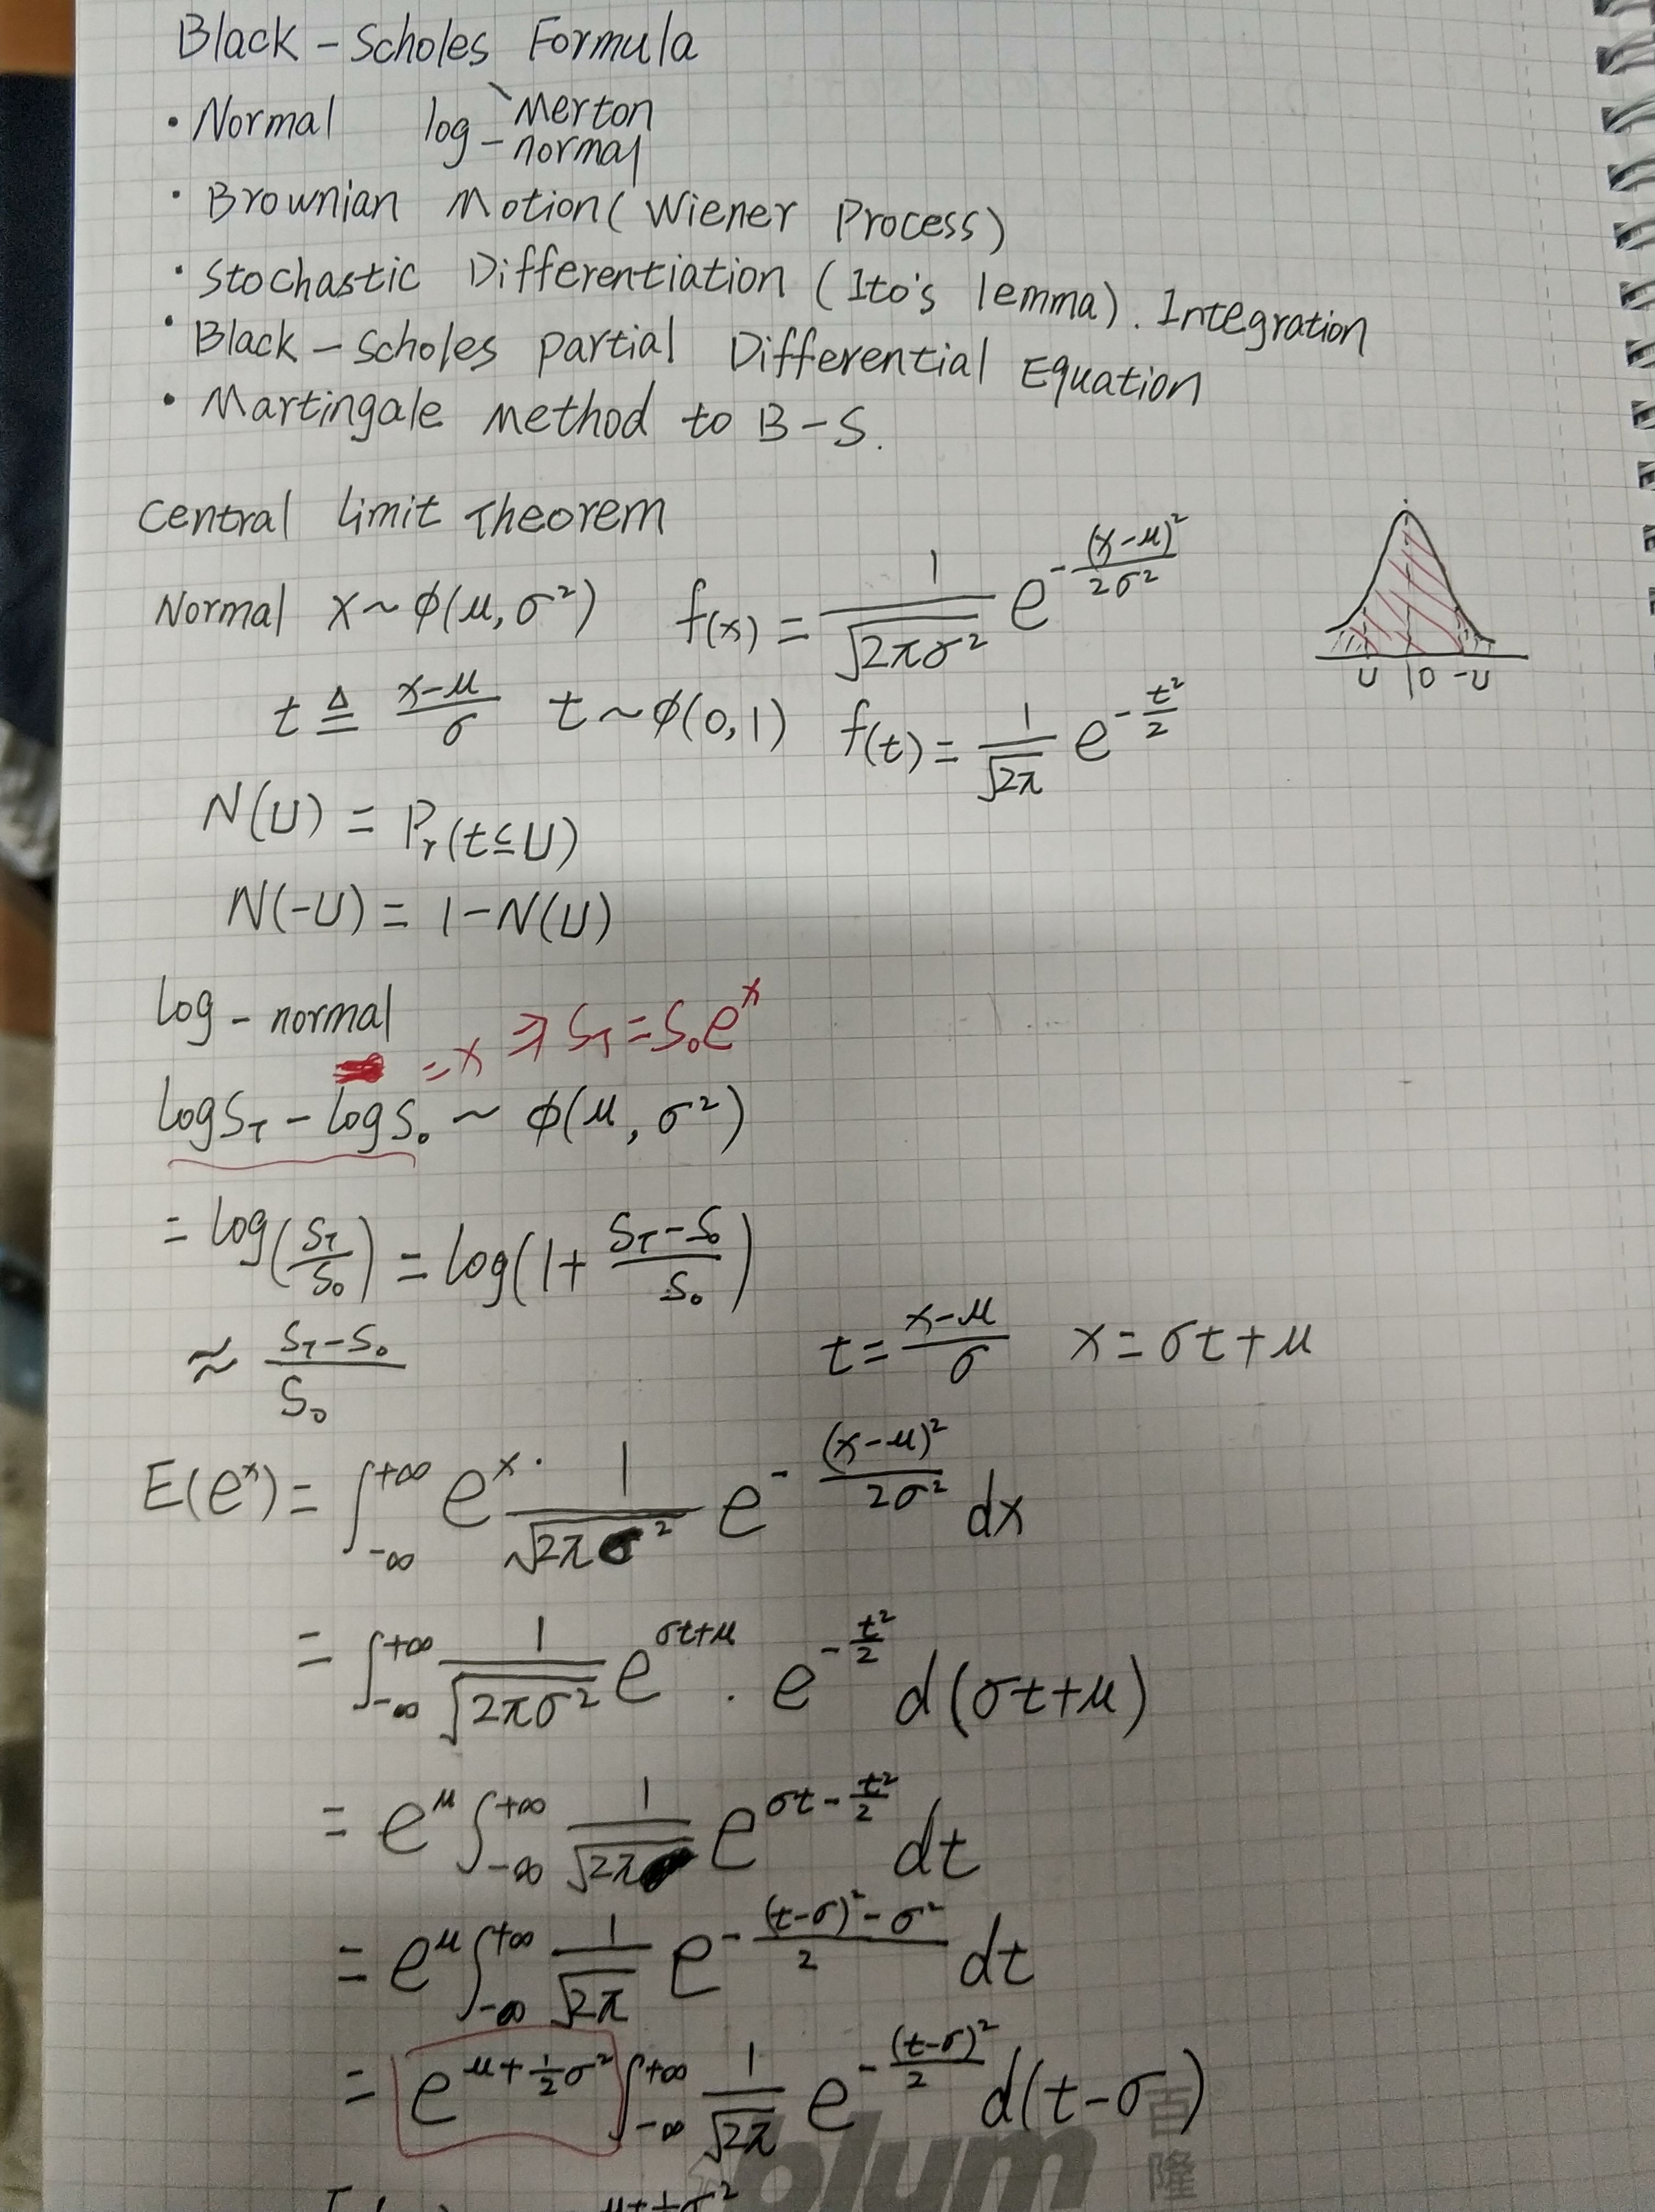 Black - Scholes Formula
• Normal log - normal Merton
• Brownian Motion (Wiener Process)
• Stochastic Differentiation (Ito's lemma). Integration
• Black - Scholes Partial Differential Equation
• Martingale method to B-S.
Central limit Theorem
Normal x ~ φ(μ, σ²) f(x) = 1/√(2πσ²) e^(-(x-μ)²/2σ²)
U | 0 -U
t ≜ (x-μ)/σ t ~ φ(0,1) f(t) = 1/√(2π) e^(-t²/2)
N(U) = Pr(t ≤ U)
N(-U) = 1 - N(U)
log - normal
= x ⇒ S_T = S₀e^x
log S_T - log S₀ ~ φ(μ, σ²)
= log(S_T/S₀) = log(1 + (S_T - S₀)/S₀)
≈ (S_T - S₀)/S₀
t = (x-μ)/σ x = σt + μ
E(e^x) = ∫_{-∞}^{+∞} e^x · 1/√(2πσ²) e^(-(x-μ)²/2σ²) dx
= ∫_{-∞}^{+∞} 1/√(2πσ²) e^(σt+μ) · e^(-t²/2) d(σt+μ)
= e^μ ∫_{-∞}^{+∞} 1/√(2π) e^(σt - t²/2) dt
= e^μ ∫_{-∞}^{+∞} 1/√(2π) e^(-((t-σ)² - σ²)/2) dt
= e^(μ + ½σ²) ∫_{-∞}^{+∞} 1/√(2π) e^(-(t-σ)²/2) d(t-σ)
blum 百隆